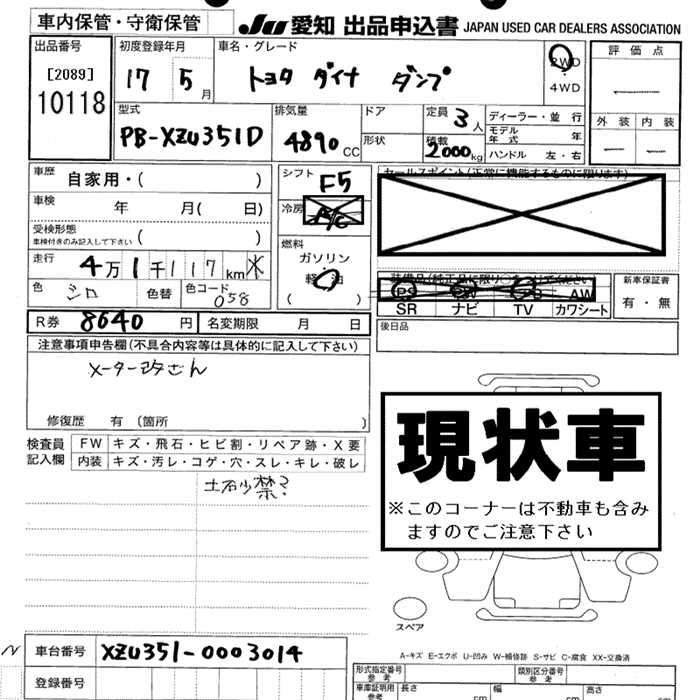 車内保管・守衛保管 JU 愛知 出品申込書 JAPAN USED CAR DEALERS ASSOCIATION
出品番号 初度登録年月 車名・グレード 2WD 評価点
[2089] 17 5月 トヨタ ダイナ ダンプ 4WD
10118
型式 排気量 ドア 定員 3人 ディーラー・並行 外装 内装
PB-XZU351D 4890cc 形状 積載 2000kg モデル年式 年
ハンドル 左・右
車歴 自家用・( ) シフト F5 セールスポイント(正常に機能するものに限ります)
車検 年 月( 日) 冷房 A/C
受検形態 車検付きのみ記入して下さい ( ) 燃料
ガソリン
走行 4万1千117km 軽油
( )
色 シロ 色替 色コード 058 装備品(純正品に限り○をつけてください) 新車保証書
PS AW 有・無
SR ナビ TV カワシート
R券 8640円 名変期限 月 日 後日品
注意事項申告欄(不具合内容等は具体的に記入して下さい)
メーター改ざん
修復歴 有 (箇所 )
現状車
※このコーナーは不動車も含み
ますのでご注意下さい
検査員記入欄 FW キズ・飛石・ヒビ割・リペア跡・X要
内装 キズ・汚レ・コゲ・穴・スレ・キレ・破レ
土砂禁?
スペア
車台番号 XZU351-0003014
A-キズ E-エクボ U-凹み W-補修跡 S-サビ C-腐食 XX-交換済
登録番号
形式指定番号 参考 類別区分番号 参考
車庫証明用 参考 長さ cm 幅 cm 高さ cm